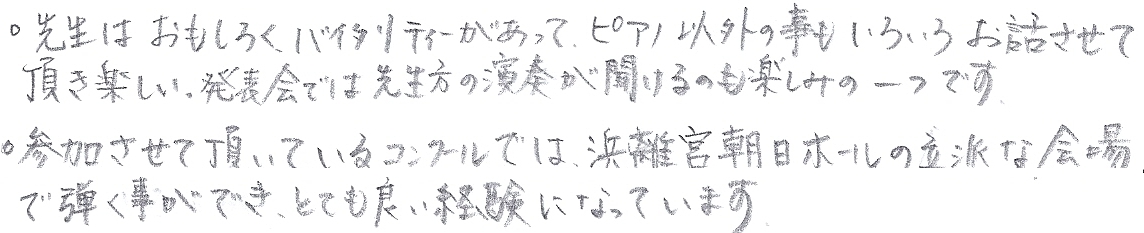 ○ 先生はおもしろくバイタリティーがあって、ピアノ以外の事もいろいろお話させて
頂き楽しい。発表会では先生方の演奏が聞けるのも楽しみの一つです。
○ 参加させて頂いているコンクールでは、浜離宮朝日ホールの立派な会場
で弾く事ができ、とても良い経験になっています